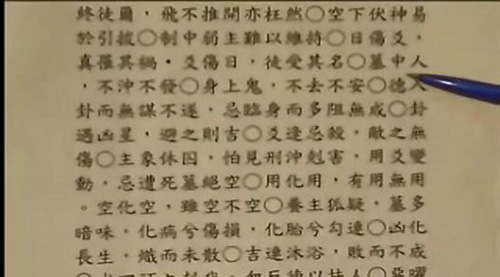 終徒爾，飛不推開亦枉然○空下伏神易
於引拔○制中弱主難以維持○日傷爻，
真罹其禍・爻傷日，徒受其名○墓中人
，不沖不發○身上鬼，不去不安○德入
卦而無謀不遂，忌臨身而多阻無成○卦
遇凶星，避之則吉○爻逢忌殺，敵之無
傷○主象休囚，怕見刑沖剋害，用爻變
動，忌遭死墓絕空○用化用，有用無用
。空化空，雖空不空○養主狐疑，墓多
暗昧，化病兮傷損，化胎兮勾連○凶化
長生，熾而未散○吉連沐浴，敗而不成